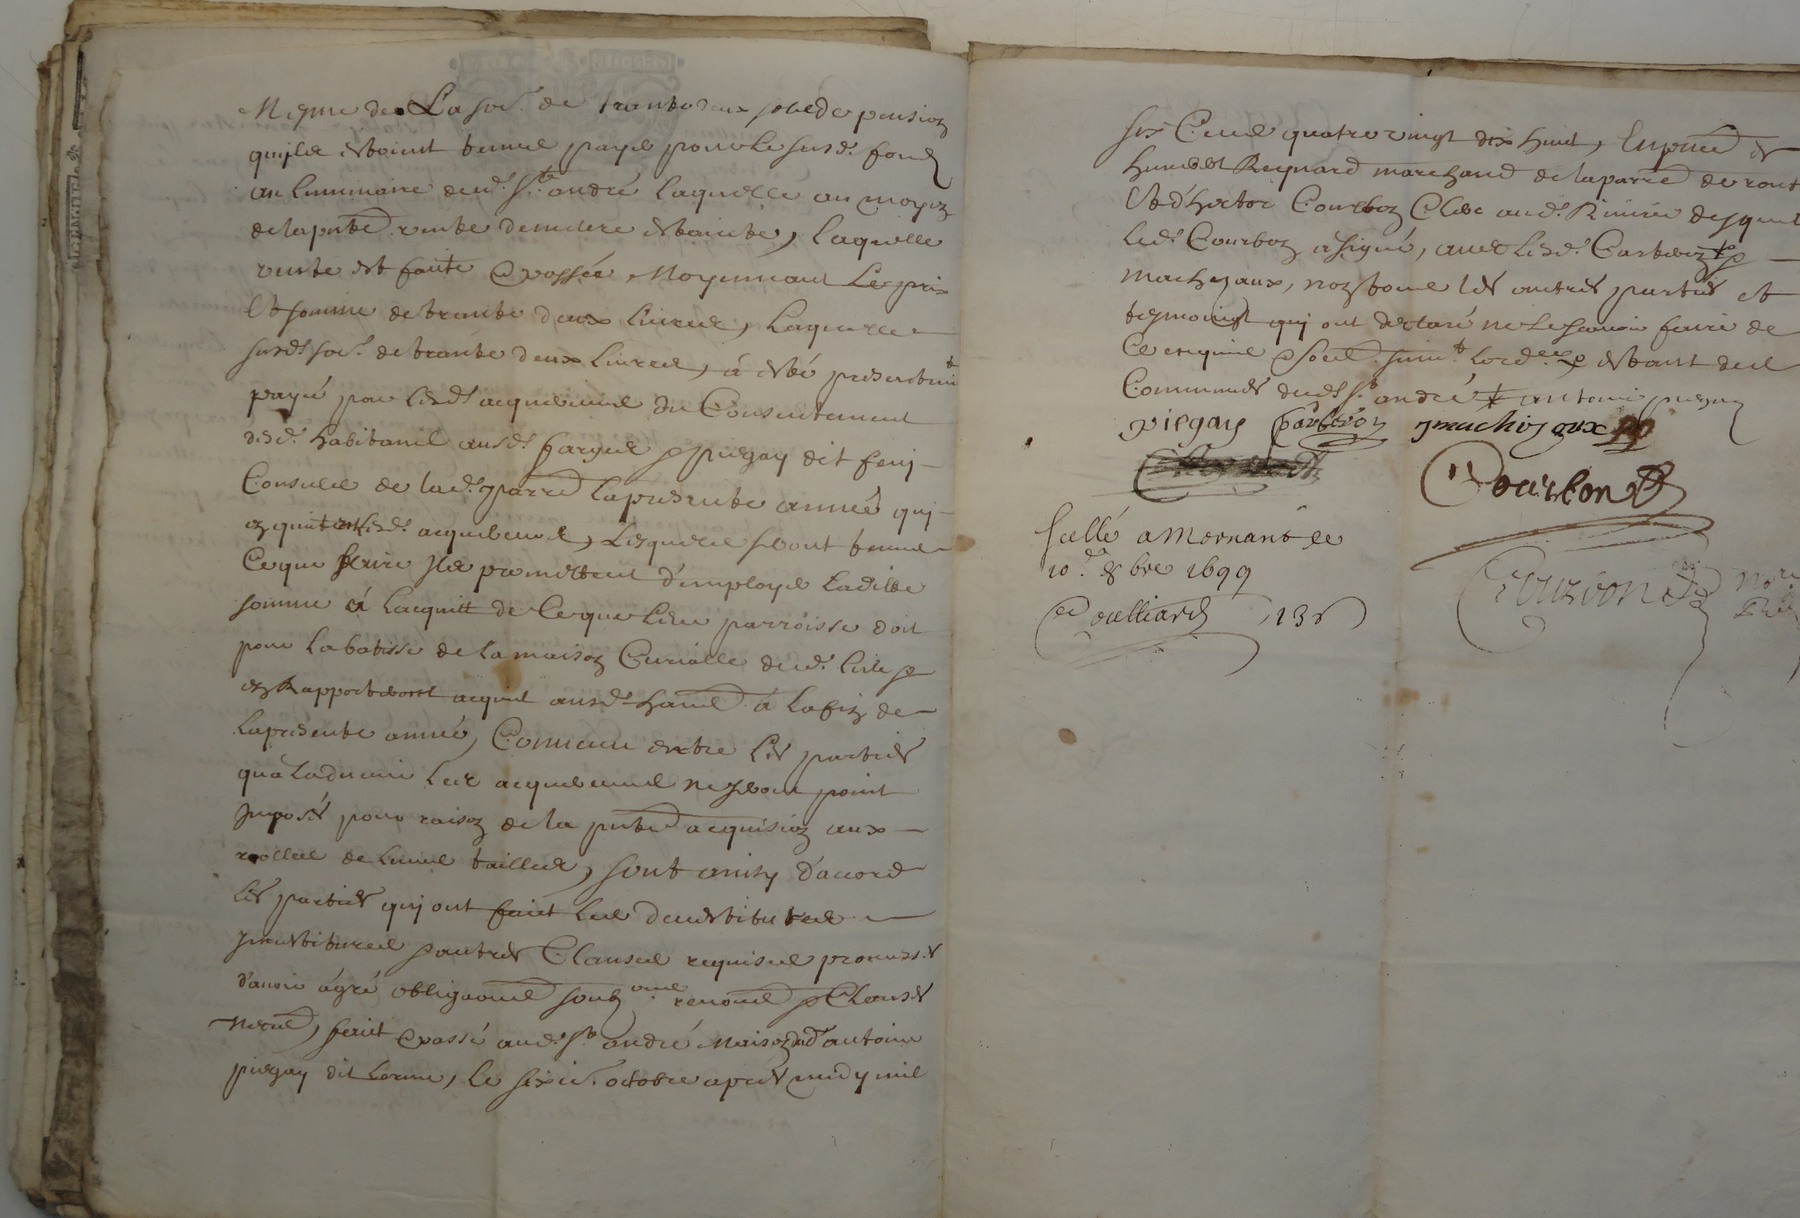 mesme de La so.e de trante deux sols de pension
qu'ils estoient tenus payer pour le susd. fond
au luminaire dud. St andré laquelle au moyen
de la pnte vente demeure estainte, laquelle
vente est faite & passée moyennant Le prix
Et somme de trante deux livres, Laquelle
susd. so.e de trante deux livres, a esté presentemt
payé par lesd. acquereurs du Consentement
desd. habitans ausd. fargues & piegay dit
Consuls de lad. parre la presente année qui
en quittent lesd. acquereurs, Lesquels seront tenus
Ce que faire Ils promettent d'employer Laditte
somme á Lacquitt de Ce que leur parroisse doit
pour la batisse de la maison Curialle dud. lieu &
en Rapporteront acquit ausd. à la fin de
la presente année, Convenu entre Les parties
qua Ladvenir les acquereurs ne seront point
Imposés pour raison de la pnte acquision aux
rolles de leurs tailles, sont ainsy d'accord
les parties qui ont fait les devestitures
Investitures & autres Clauses requises promesses
d'avoir à gré obligations renons & Clauses
fait & passé aud. St andré maison dud. antoine
piegay dit, le sixie. octobre apres midy mil
six Cens quatre vingt dix huit, En pnce de
Reynard marchand de la parre de ront
Et d'hector Courbon Clerc aud. Riverie desquels
led. Courbon a signé, avec lesd. Carteron &
machizaux, non tous les autres parties et
tesmoings qui ont declaré ne le scavoir faire de
Ce enquis & soe. suivt lord.ce & estant des
Communes dud. St andré antoine piegay
piegay Carteron machizaux
Courbon
Scellé a Mornant le
10.e 8bre 1699
Courbon